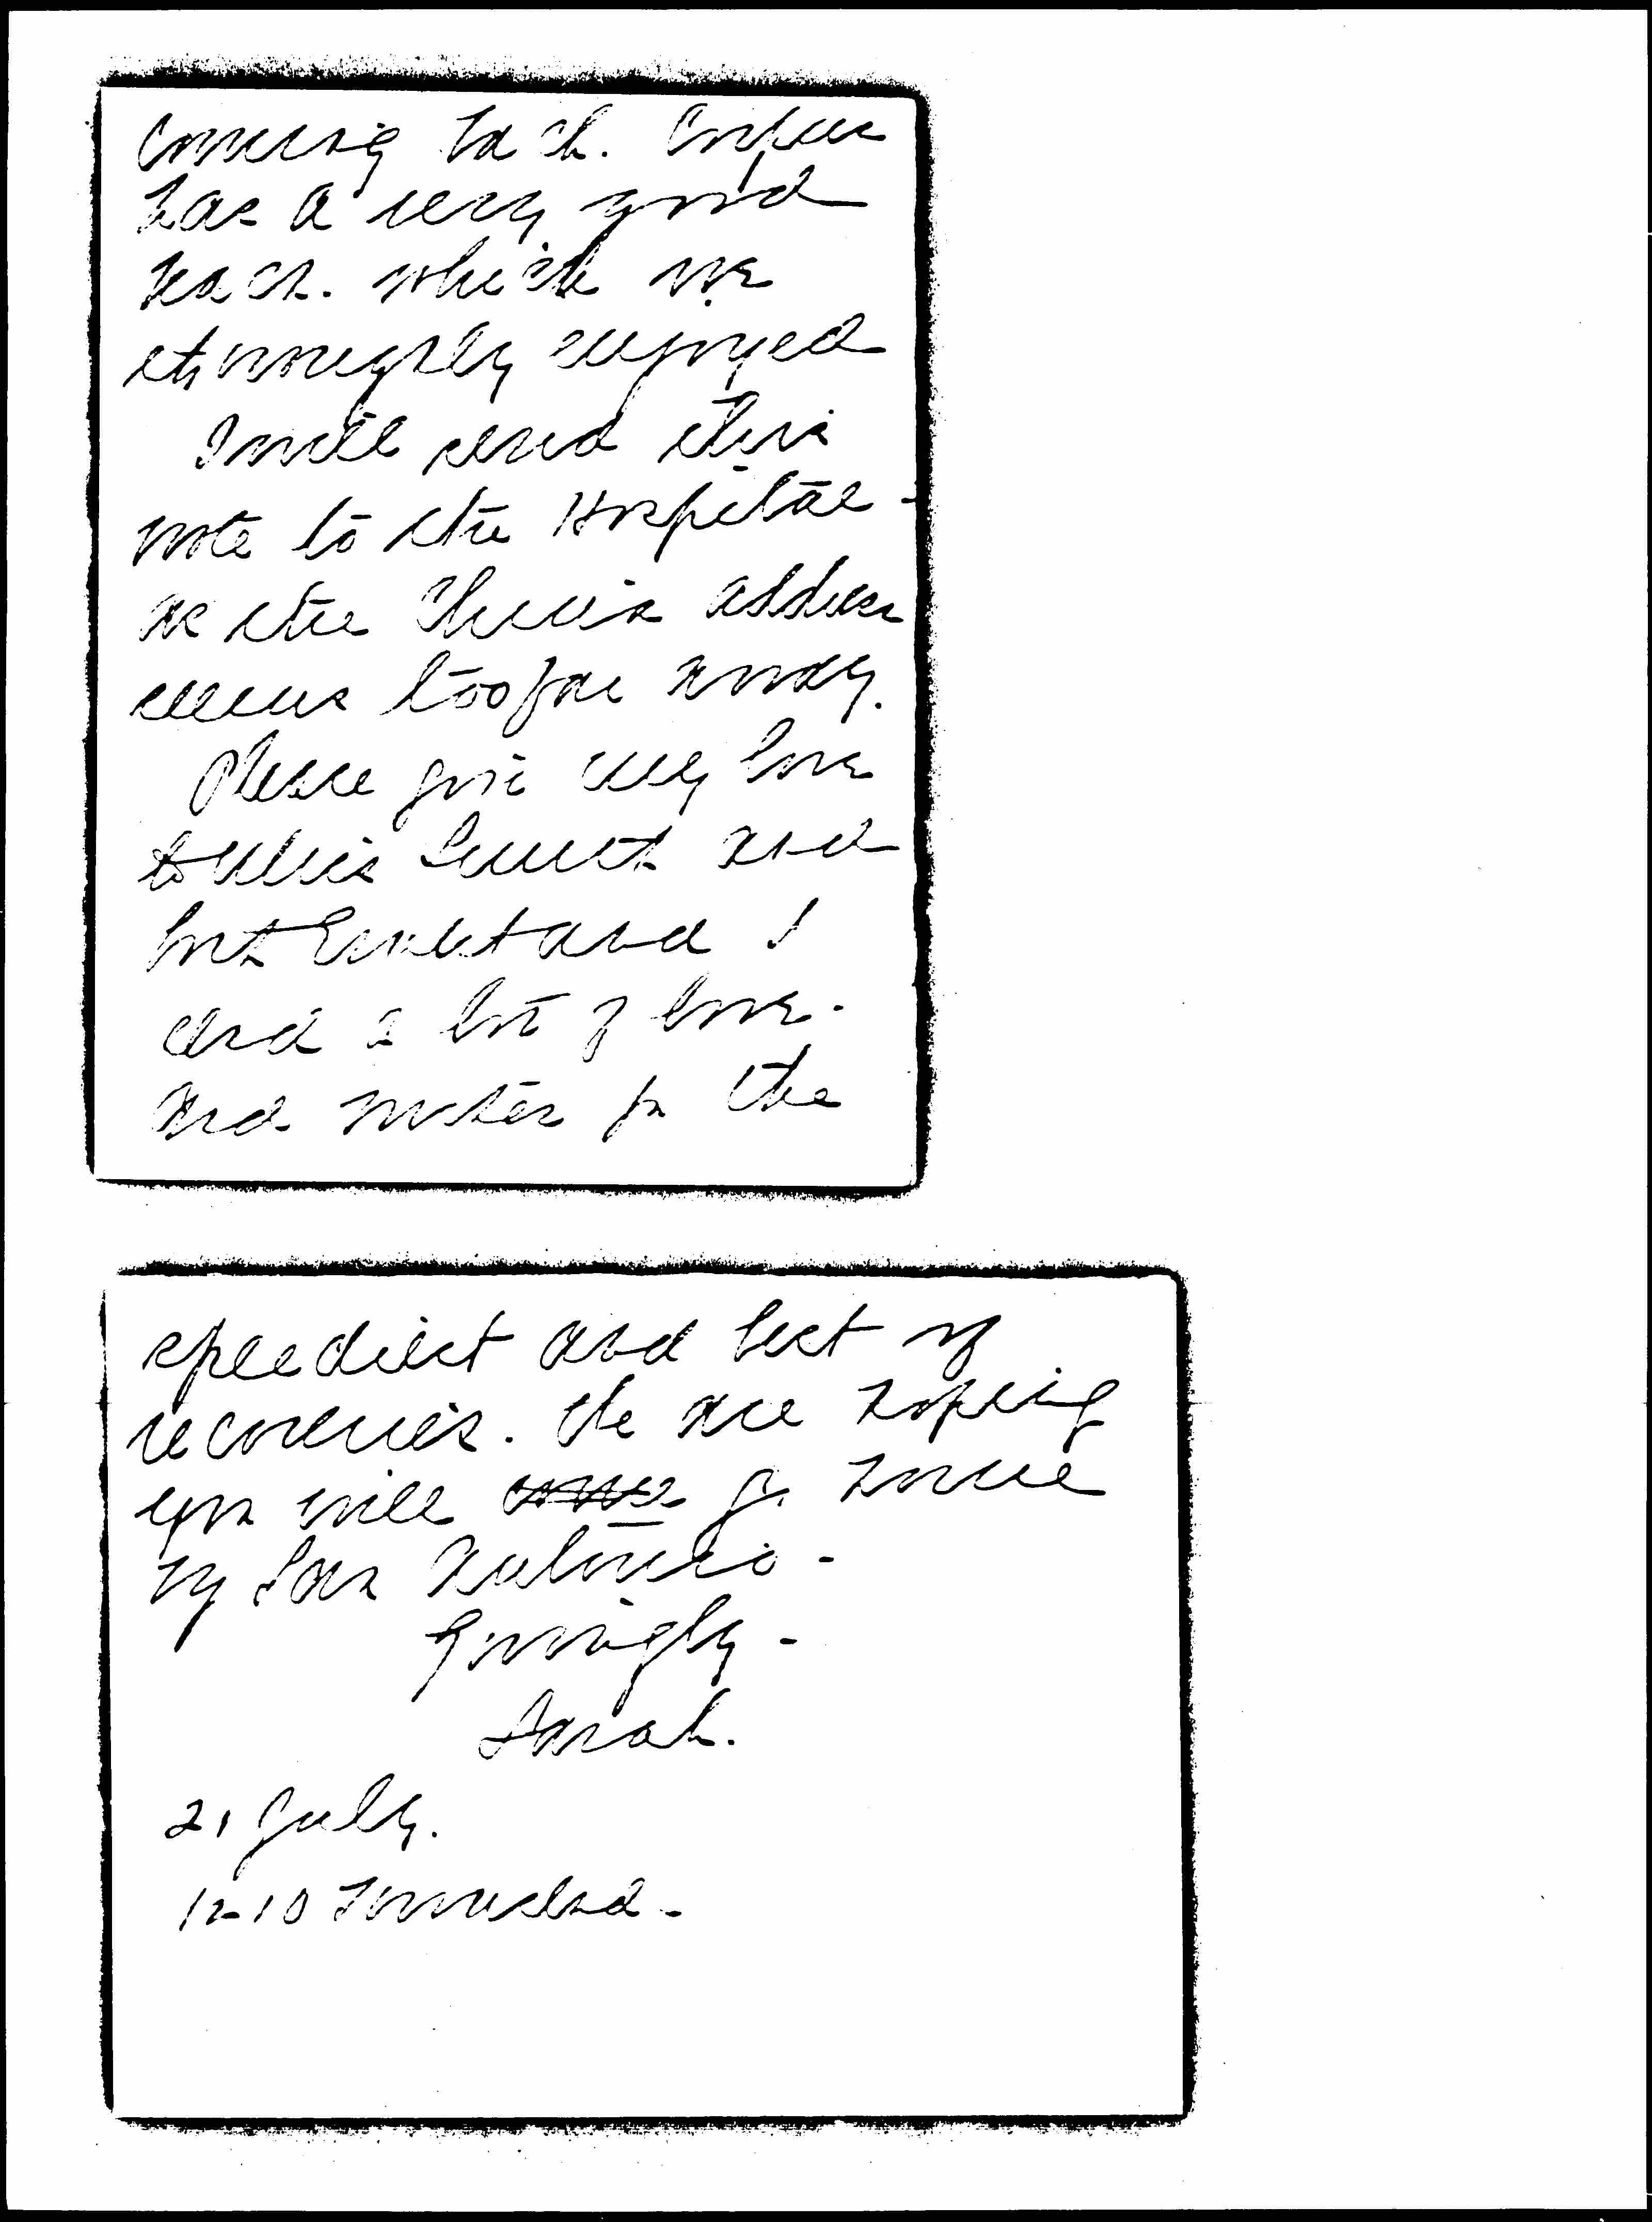 coming back. Corpus
has a very good
beach. which we
thoroughly enjoyed
I will send this
note to the Hospital -
as the address
seems too far away.
Please give my love
to Miss and
both Ernest and I
send a lot of love.
and wishes for the
speediest and best of
recoveries. We are hoping
you will go home
by San Antonio -
Lovingly -
Sarah.
21 July.
1210 Townsend -